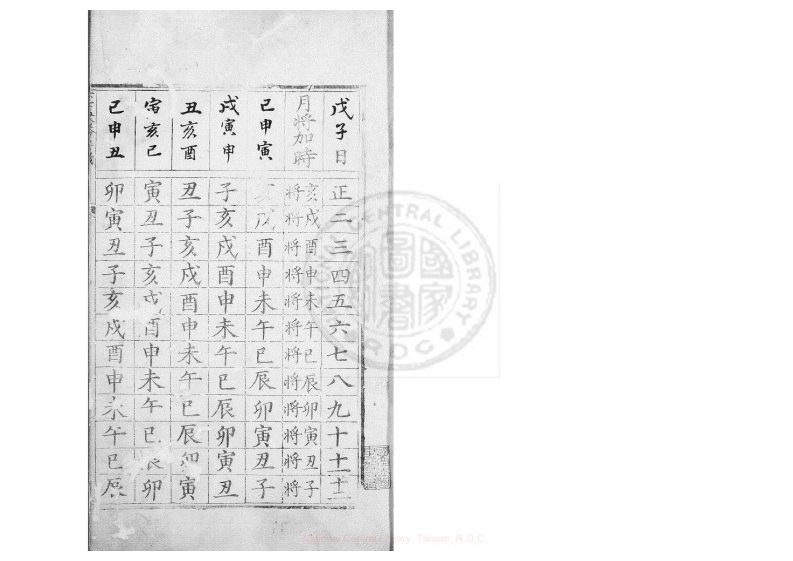 戊子日
正
二
三
四
五
六
七
八
九
十
十一
十二
月將加時
亥將
戌將
酉將
申將
未將
午將
巳將
辰將
卯將
寅將
丑將
子將
巳申寅
亥
戌
酉
申
未
午
巳
辰
卯
寅
丑
子
戌寅申
子
亥
戌
酉
申
未
午
巳
辰
卯
寅
丑
丑亥酉
丑
子
亥
戌
酉
申
未
午
巳
辰
卯
寅
寅亥巳
寅
丑
子
亥
戌
酉
申
未
午
巳
辰
卯
巳申丑
卯
寅
丑
子
亥
戌
酉
申
未
午
巳
辰
CENTRAL LIBRARY
R.O.C.
國家圖書
National Central Library, Taiwan, R.O.C.